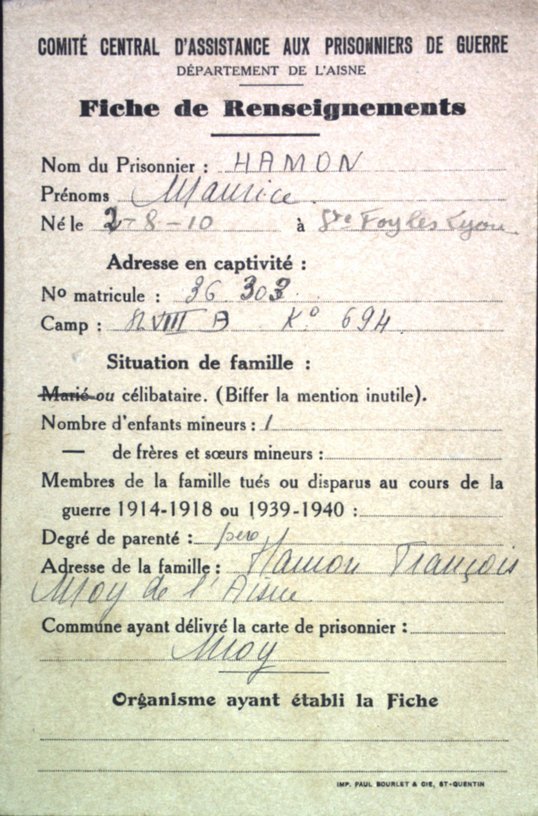 COMITÉ CENTRAL D'ASSISTANCE AUX PRISONNIERS DE GUERRE
DÉPARTEMENT DE L'AISNE
Fiche de Renseignements
Nom du Prisonnier : HAMON
Prénoms Maurice
Né le 2-8-10 à Ste Foy les Lyon
Adresse en captivité :
No matricule : 36 303
Camp : VIII A Ko 694
Situation de famille :
Marié ou célibataire. (Biffer la mention inutile).
Nombre d'enfants mineurs : 1
— de frères et sœurs mineurs :
Membres de la famille tués ou disparus au cours de la
guerre 1914-1918 ou 1939-1940 :
Degré de parenté : père
Adresse de la famille : Hamon François
Moy de l'Aisne
Commune ayant délivré la carte de prisonnier :
Moy
Organisme ayant établi la Fiche
IMP. PAUL BOURLET & CIE, ST-QUENTIN